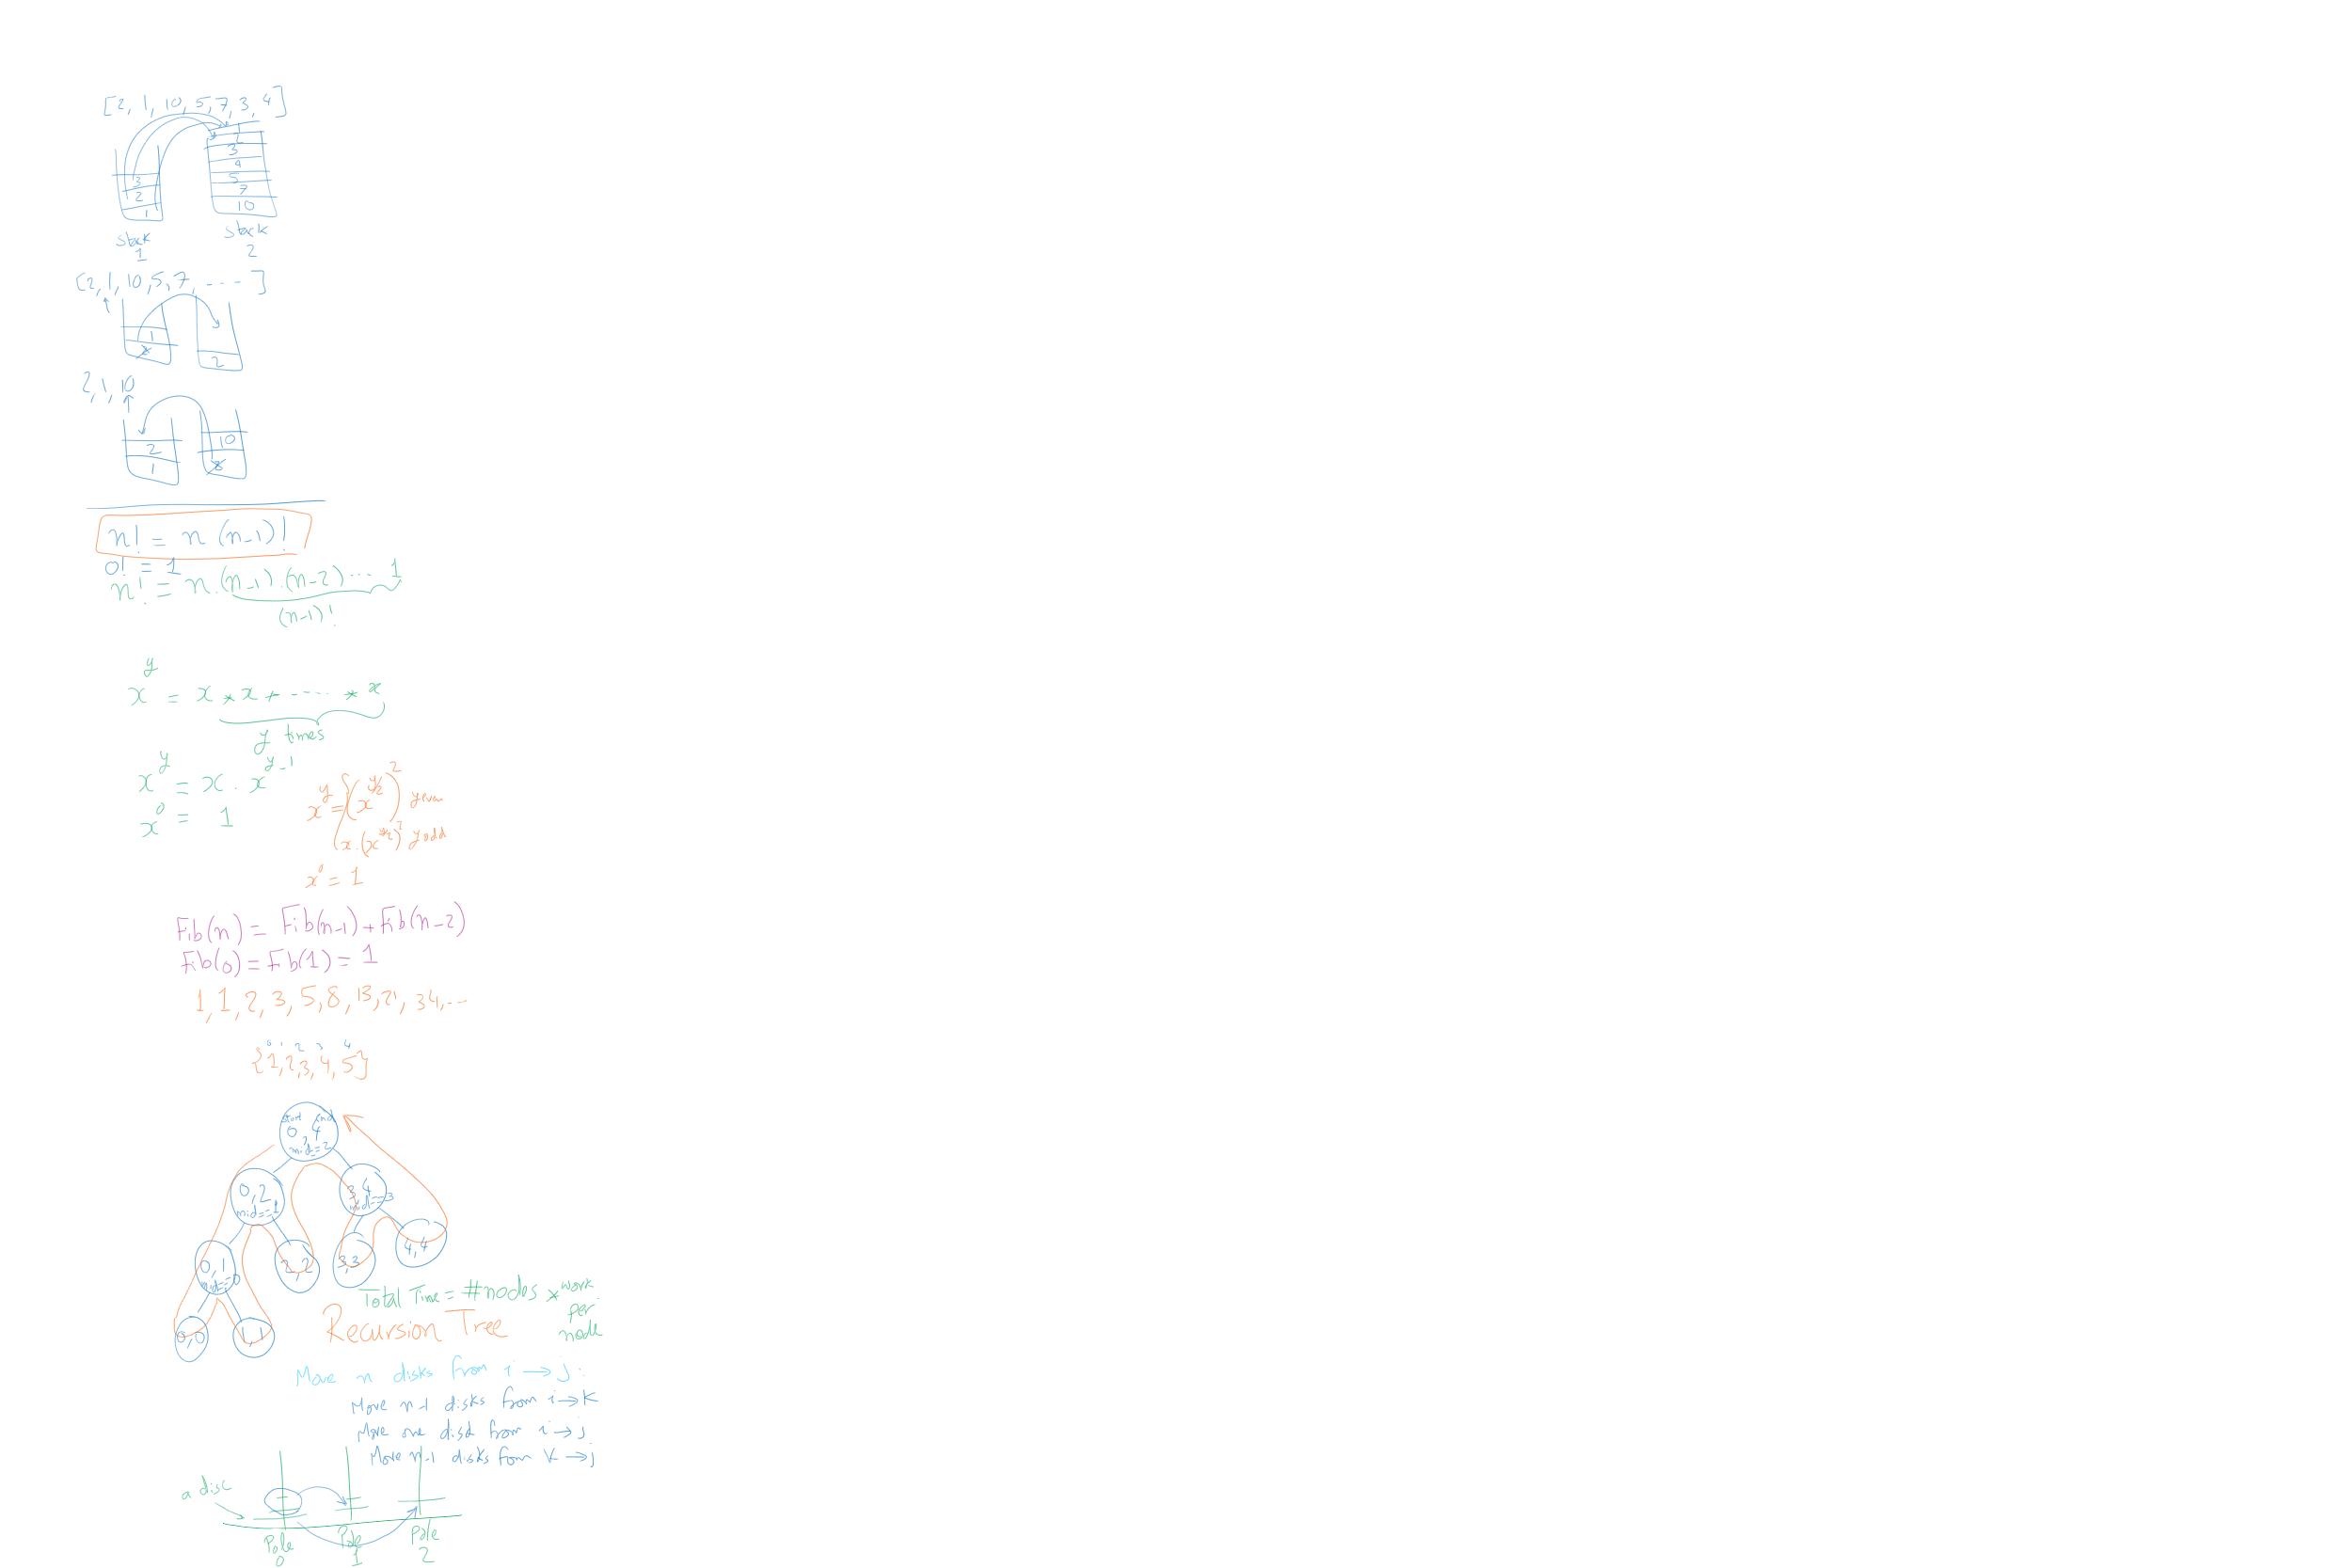 [2, 1, 10, 5, 7, 3, 4]
3
2
1
1
2
3
4
5
7
10
stack
1
stack
2
[2, 1, 10, 5, 7, - - - ]
1
2
2
2, 1, 10
2
1
10
n! = n (n-1)!
0! = 1
n! = n.(n-1).(n-2) ... 1
(n-1)!
x^y = x * x * - ---- * x
y times
x^y = x . x^y-1
x^0 = 1
x^y = { (x^y/2)^2 y even
x.(x^y/2)^2 y odd
x^0 = 1
Fib(n) = Fib(n-1) + Fib(n-2)
Fib(0) = Fib(1) = 1
1, 1, 2, 3, 5, 8, 13, 21, 34, ...
0 1 2 3 4
{1, 2, 3, 4, 5}
start end
0, 4
mid=2
0, 2
mid=1
3, 4
mid=3
0, 1
mid=0
2, 2
3, 3
4, 4
0, 0
1, 1
Total Time = #nodes * work per node
Recursion Tree
Move n disks from i → j:
Move n-1 disks from i → k
Move one disk from i → j
Move n-1 disks from k → j
a disc
Pole
0
Pole
1
Pole
2